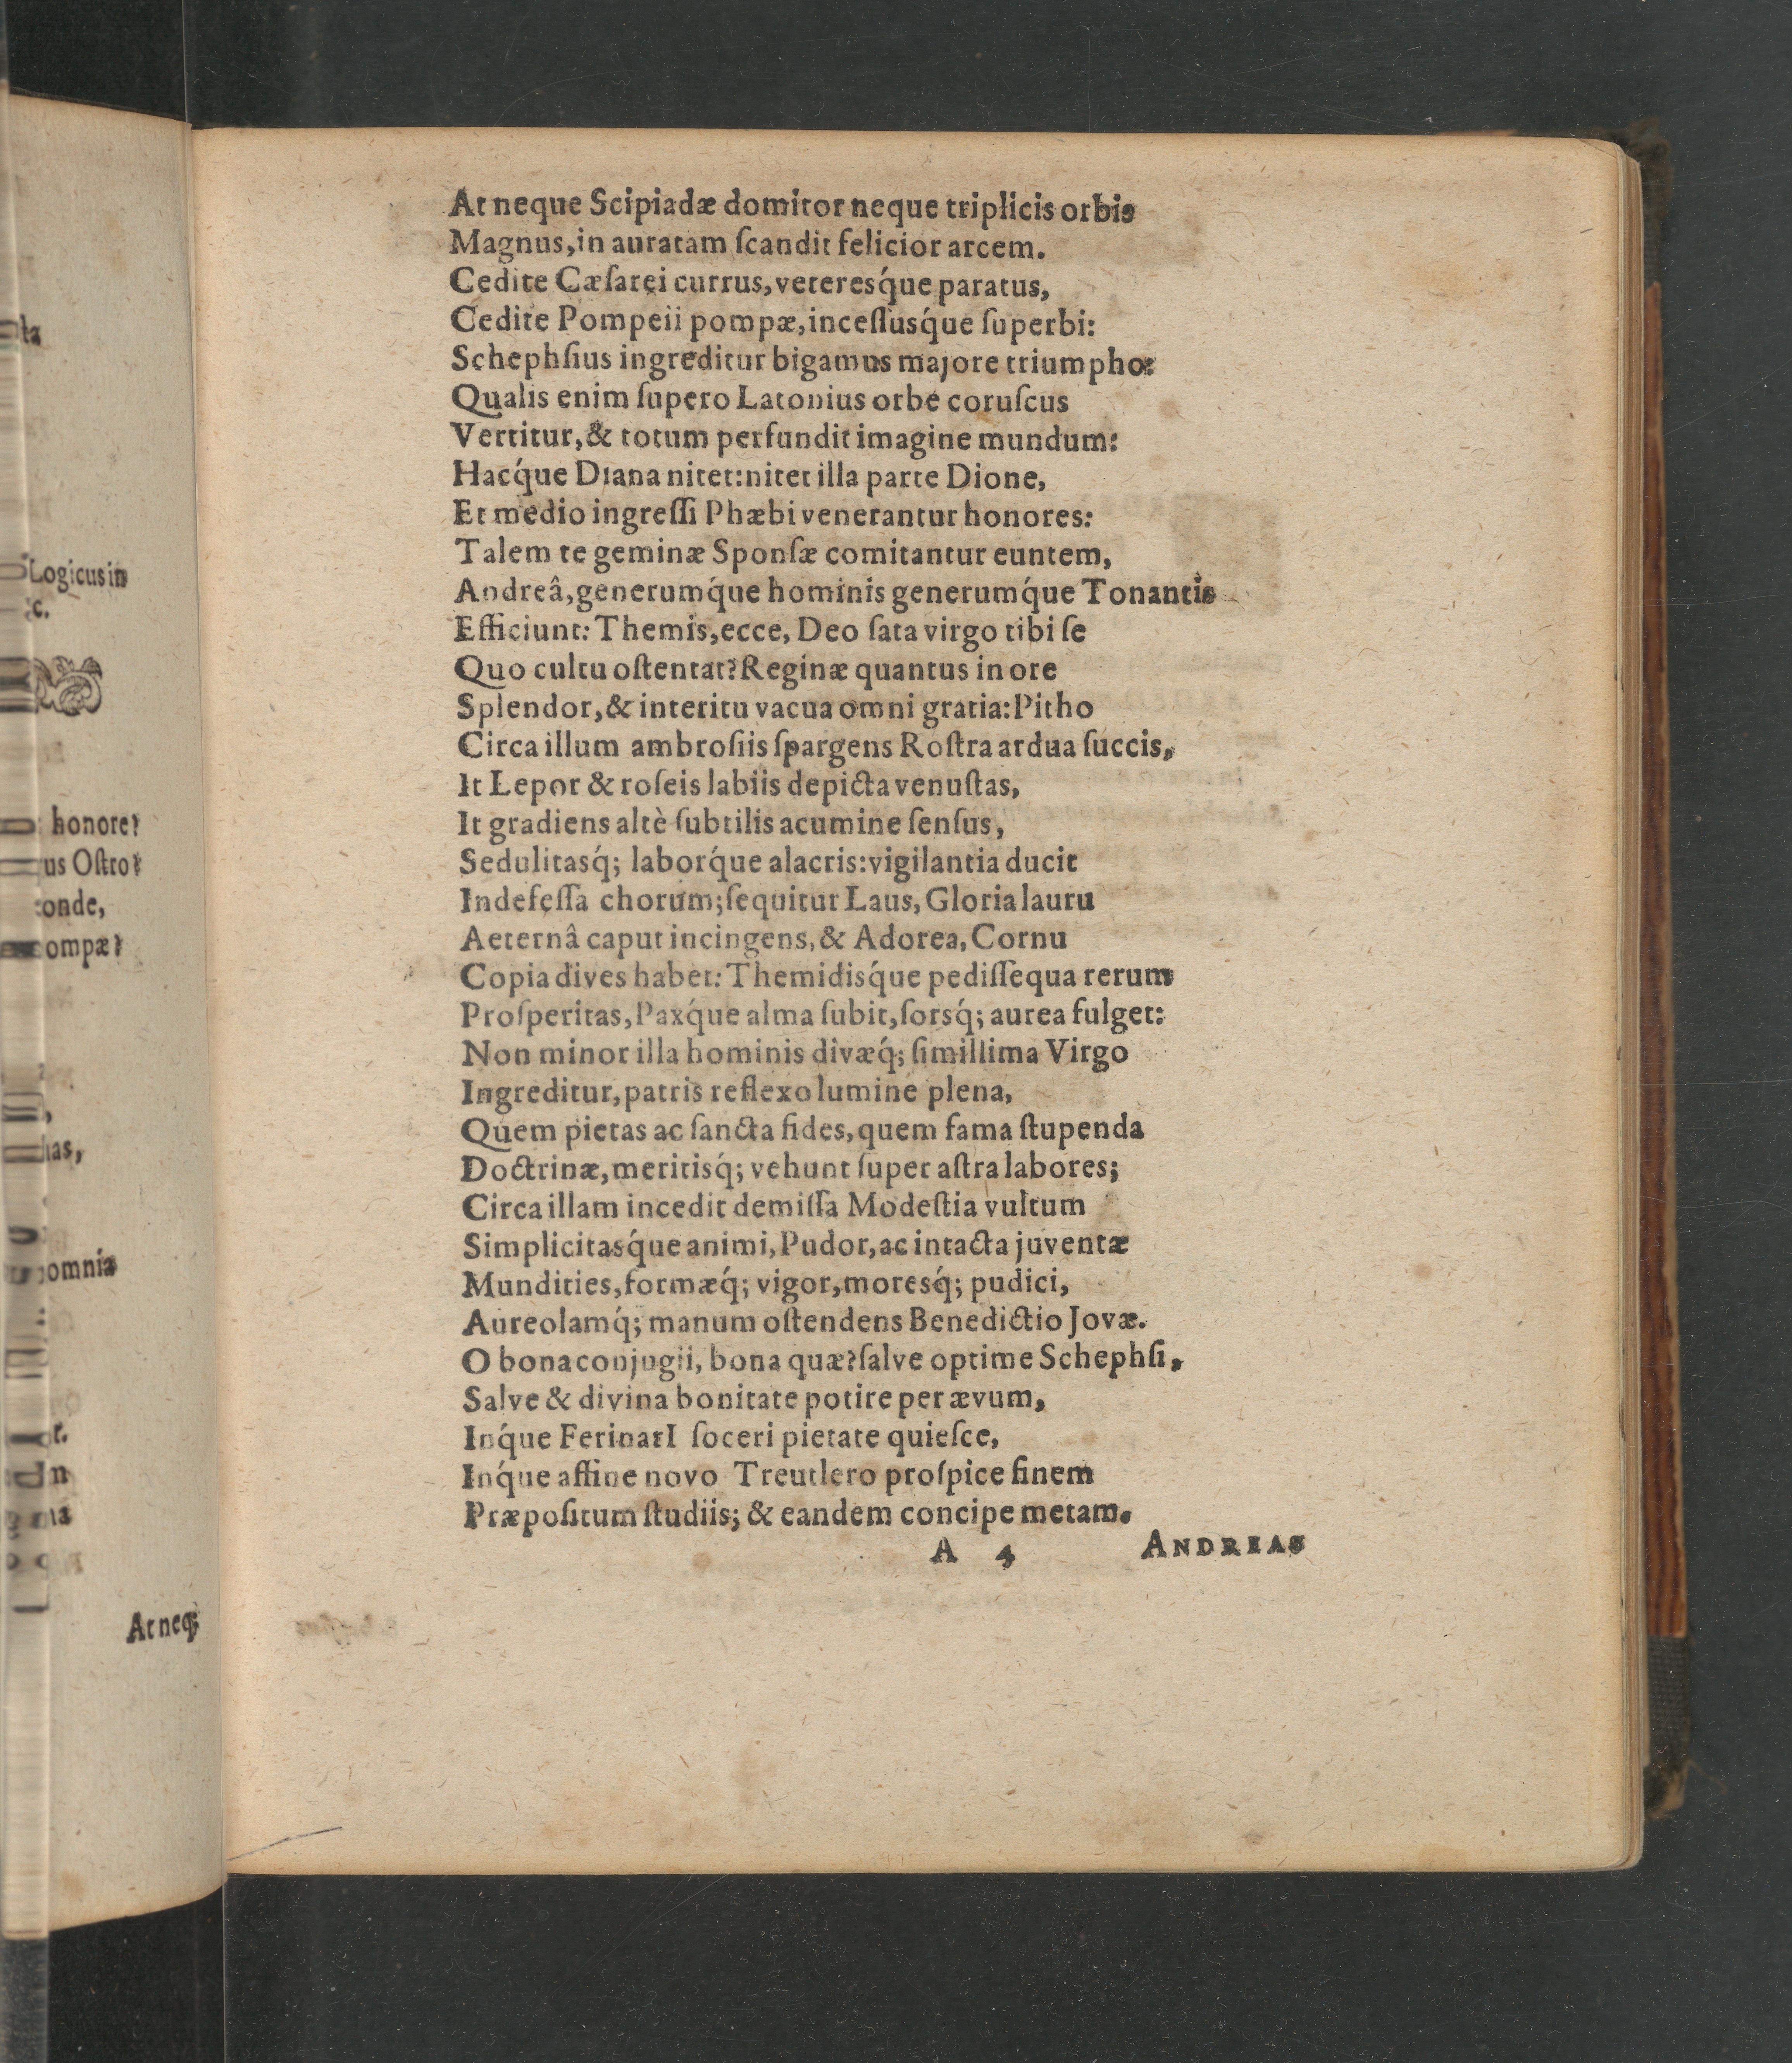 At neque Scipiadæ domitor neque triplicis orbis
Magnus, in auratam ſcandit felicior arcem.
Cedite Cæſarei currus, veteresq́ue paratus,
Cedite Pompeii pompæ, inceſſusq́ue ſuperbi:
Schephſius ingreditur bigamus majore triumpho:
Qualis enim ſupero Latonius orbe coruſcus
Vertitur, & totum perfundit imagine mundum:
Hacq́ue Diana nitet: nitet illa parte Dione,
Et medio ingreſſi Phæbi venerantur honores:
Talem te geminæ Sponſæ comitantur euntem,
Andreâ, generumq́ue hominis generumq́ue Tonantis
Efficiunt: Themis, ecce, Deo ſata virgo tibi ſe
Quo cultu oſtentat? Reginæ quantus in ore
Splendor, & interitu vacua omni gratia: Pitho
Circa illum ambroſiis ſpargens Roſtra ardua ſuccis,
It Lepor & roſeis labiis depicta venuſtas,
It gradiens altè ſubtilis acumine ſenſus,
Sedulitasq́; laborq́ue alacris: vigilantia ducit
Indefeſſa chorum; ſequitur Laus, Gloria lauru
Aeternâ caput incingens, & Adorea, Cornu
Copia dives habet: Themidisq́ue pediſſequa rerum
Proſperitas, Paxq́ue alma ſubit, ſorsq́; aurea fulget:
Non minor illa hominis divæq́; ſimillima Virgo
Ingreditur, patris reflexo lumine plena,
Quem pietas ac ſancta fides, quem fama ſtupenda
Doctrinæ, meritisq́; vehunt ſuper aſtra labores;
Circa illam incedit demiſſa Modeſtia vultum
Simplicitasq́ue animi, Pudor, ac intacta juventæ
Mundities, formæq́; vigor, moresq́; pudici,
Aureolamq́; manum oſtendens Benedictio Jovæ.
O bona conjugii, bona quæ? ſalve optime Schephſi,
Salve & divina bonitate potire per ævum,
Inq́ue FerinarI ſoceri pietate quieſce,
Inq́ue affine novo Treutlero proſpice finem
Præpoſitum ſtudiis; & eandem concipe metam.
A 4 ANDREAS
Logicus in
honore?
us Oſtro?
onde,
ompæ?
omnia
At neq;